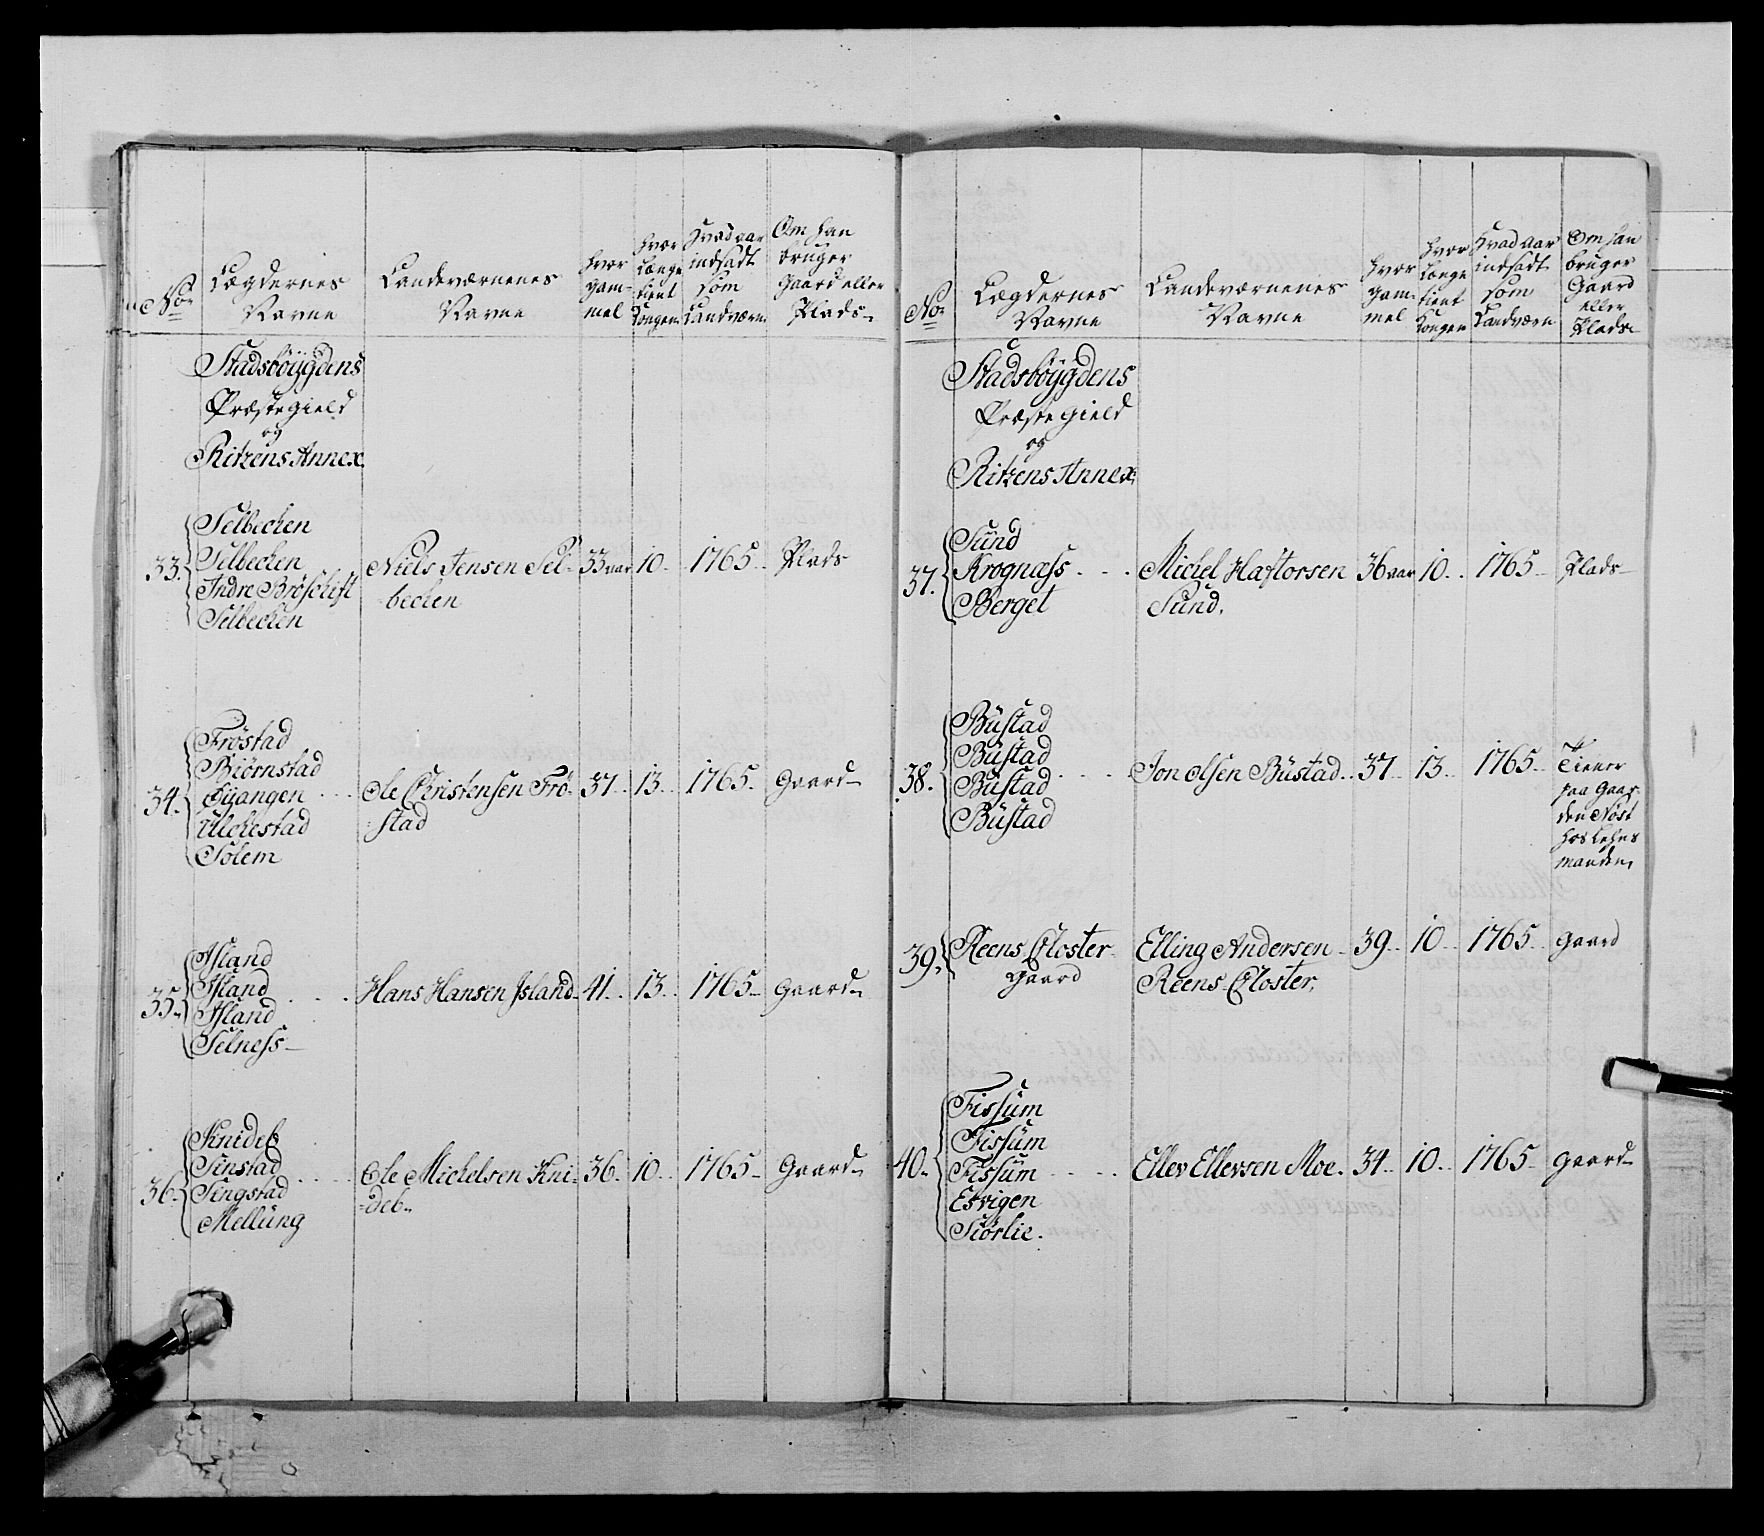 No
Lægdernes
Navne
Landeværnenes
Navne
hvor
gam-
mel
hvor
længe
tient
Kongen
Hvad aar
indsadt
som
Landværn
Om han
bruger
Gaard eller
Plads
Stadsböÿgdens
Præstegield
og
Ritzens Annex
33.
Selbechen
Selbechen
Indre Bröschift
Selbechen
Niels Jensen Sel-
bechen
33 aar
10
1765
Plads
34.
Fröstad
Biörnstad
Ulchestad
Solem
Ole Christensen Frö-
stad
37
13
1765
Gaard
35
Island
Island
Island
Selness
Hans Hansen Island
41
13
1765
Gaard
36
Knideb
Sinstad
Singstad
Mellüng
Ole Michelsen Kni-
deb
36
10
1765
Gaard
No
Lægdernes
Navne
Landeværnenes
Navne
hvor
gam-
mel
hvor
længe
tient
Kongen
Hvad aar
indsadt
som
Landværn
Om han
bruger
Gaard
eller
Plads
Stadsböÿgdens
Præstegield
og
Ritzens Annex
37.
Sund
Krognæss
Berget
Michel Haftorsen
Sund.
36 aar
10
1765
Plads
38.
Büstad
Büstad
Büstad
Büstad
Jon Olsen Büstad
37
13
1765
Tiener
paa Gaar-
den Nöst
hos Lehns
manden
39.
Reens Closter
gaard
Elling Andersen
Reens Closter.
39
10
1765
Gaard
40
Fissüm
Fissüm
Fissüm
Esvigen
Siörlie.
Ellev Ellevsen Moe
34
10
1765
Gaard